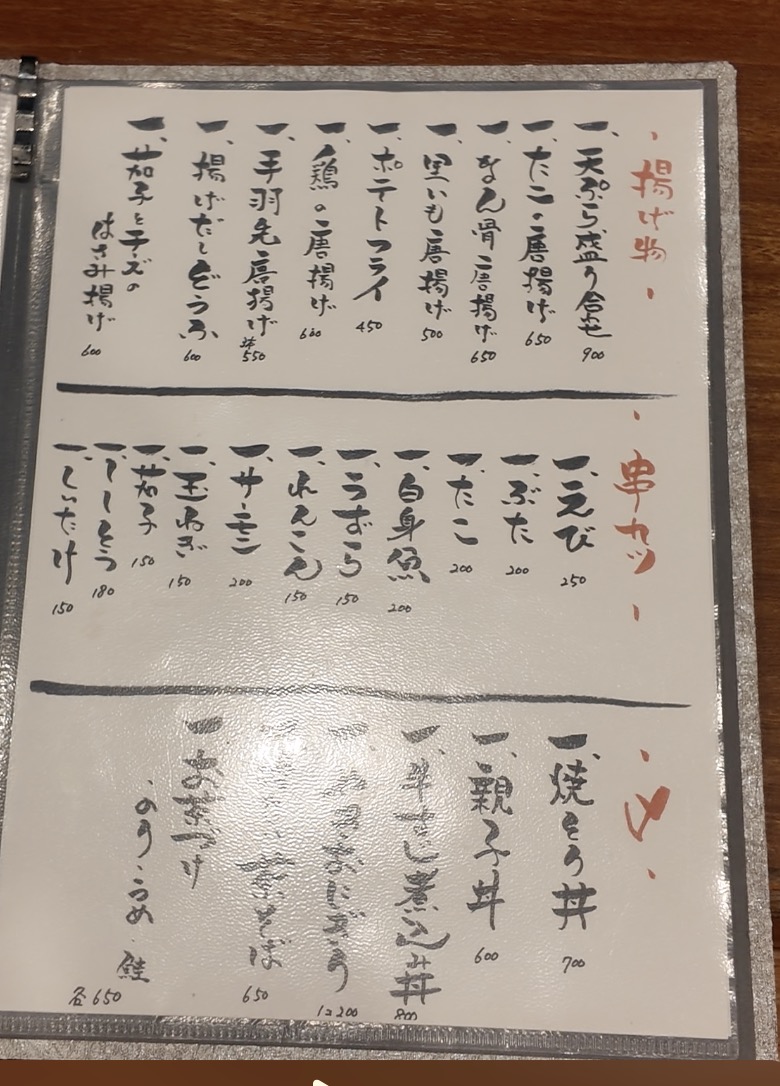 ・揚げ物・
一、天ぷら盛り合せ 900
一、たこの唐揚げ 650
一、なん骨唐揚げ 650
一、里いも唐揚げ 500
一、ポテトフライ 450
一、鶏の唐揚げ 600
一、手羽先唐揚げ 3本 550
一、揚げだしどうふ 600
一、茄子とチーズの
はさみ揚げ 600
・串カツ・
一、えび 250
一、ぶた 200
一、たこ 200
一、白身魚 200
一、うずら 150
一、れんこん 150
一、サーモン 200
一、玉ねぎ 150
一、茄子 150
一、ししとう 180
一、しいたけ 150
・〆・
一、焼とり丼 700
一、親子丼 600
一、牛すじ煮込み丼 800
一、おにぎり 1コ 200
一、茶そば 650
一、お茶づけ
・のり・うめ・鮭
各650